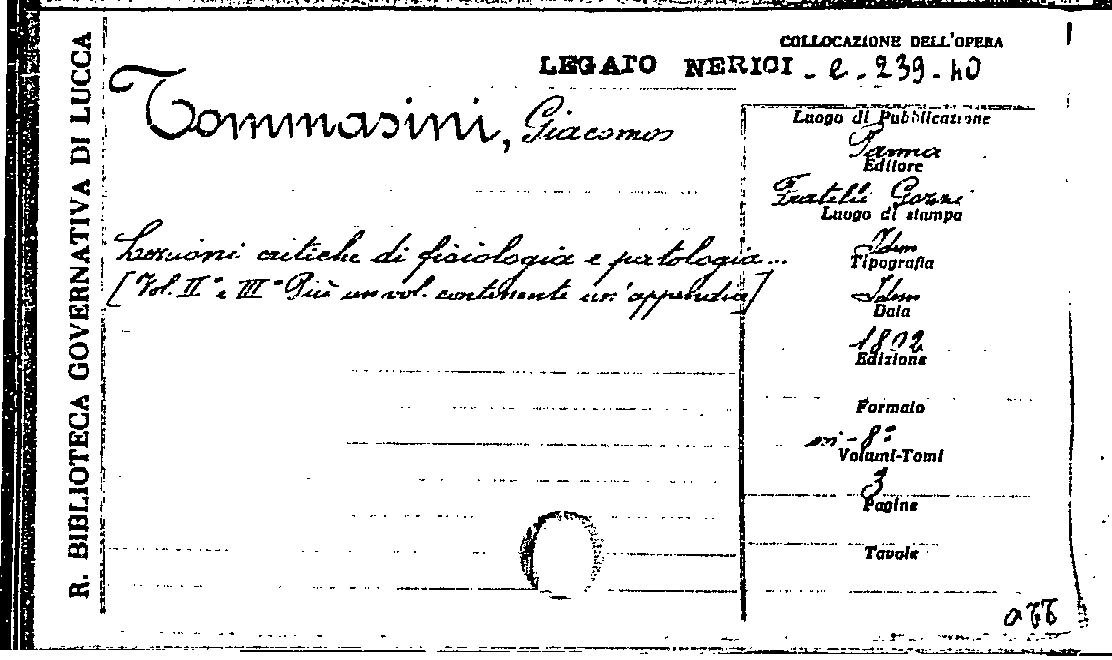 R. BIBLIOTECA GOVERNATIVA DI LUCCA
COLLOCAZIONE DELL'OPERA
LEGATO NERICI - e. 239-40
Tommasini, Giacomo
Lezioni critiche di fisiologia e patologia...
[Vol. II° e III° Più un vol. contenente un'appendice]
Luogo di Pubblicazione
Parma
Editore
Fratelli Gozzi
Luogo di stampa
Idem
Tipografia
Idem
Data
1802
Edizione
Formato
in-8°
Volumi-Tomi
3
Pagine
Tavole